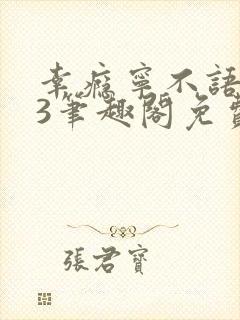 幸瘾寧不語
3筆趣閣免費
張君寶